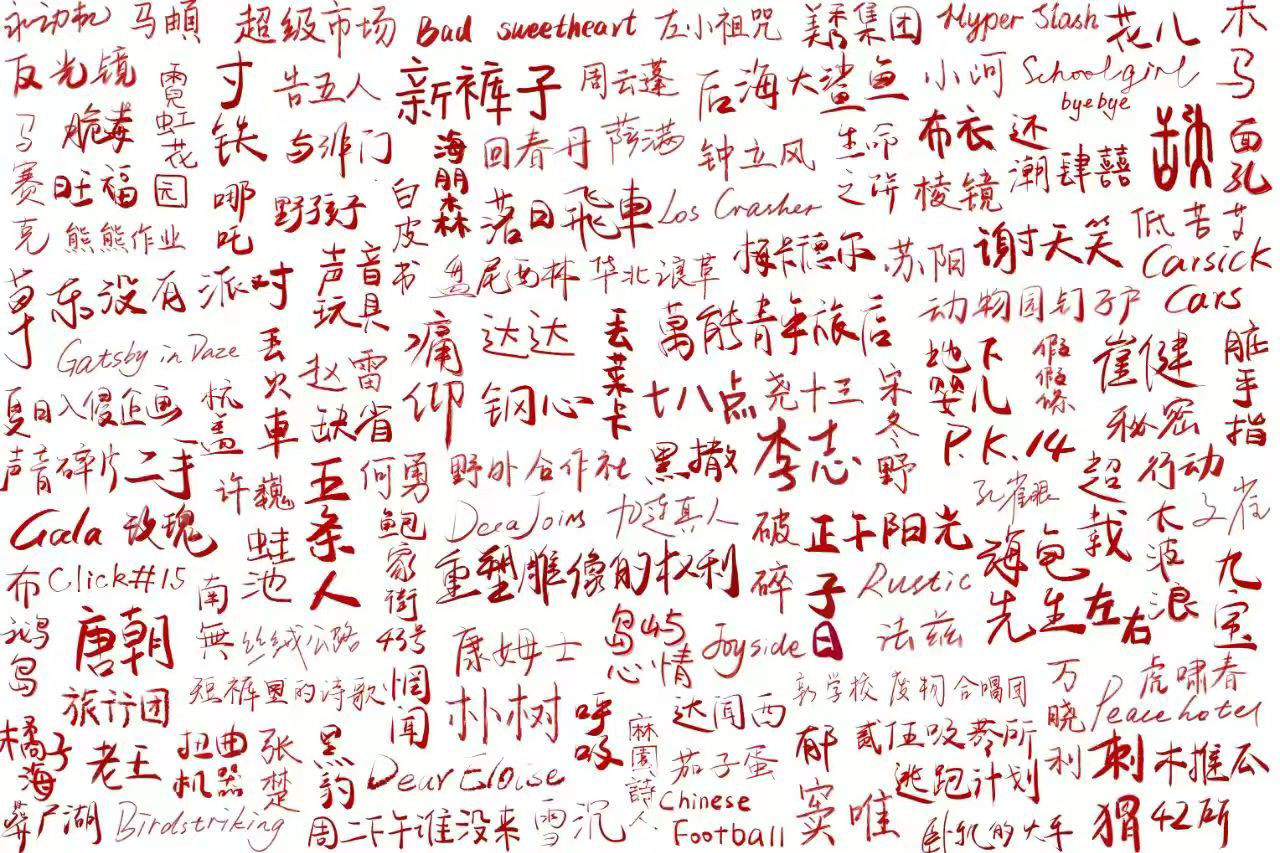 永动机 马頔 超级市场 Bad sweetheart 左小祖咒 美秀集团 Hyper Slash 花儿 木马
反光镜 霓虹花园 寸铁 告五人 新裤子 周云蓬 后海大鲨鱼 小河 Schoolgirl byebye
马赛克 脆莓 与非门 海朋森 回春丹 薛满 钟立风 生命之饼 布衣 还潮 缺 面孔
旺福 哪吒 野孩子 白皮书 落日飛車 Los Crasher 棱镜 肆囍
熊熊作业 声音玩具 盘尼西林 华北浪革 梅卡德尔 苏阳 谢天笑 低苦艾 Carsick Cars
草东没有派对 痛仰 达达 丢莱卡 萬能青年旅店 动物园钉子户
Gatsby in Daze 丢火車 赵雷 地下婴儿 假假條 崔健 脏手指
夏日入侵企画 杭盖 缺省 钢心 十八点 尧十三 宋冬野 秘密行动
声音碎片 二手玫瑰 许巍 五条人 何勇 野外合作社 黑撒 李志 P.K.14 超载
Gala 蛙池 鲍家街43号 DecaJoins 九连真人 破碎 正午阳光 孔雀眼 海龟先生 太波浪 文雀
布 Click#15 南無 重塑雕像的权利 子曰 Rustic 左右 九宝
鹅岛 唐朝 丝绒公路 惘闻 康姆士 岛屿心情 Joyside 法兹
旅行团 短裤里的诗歌 朴树 呼吸 达闻西 新学校废物合唱团 万晓利 虎啸春
橘子海 老王 扭曲机器 张楚 黑豹 Dear Eloise 麻園詩人 茄子蛋 郁 贰伍吸藝所 Peace hotel
葬尸湖 Birdstriking 周二下午谁没来 雪沉 Chinese Football 窦唯 逃跑计划 刺猬 木推瓜
卧轨的火车 42所